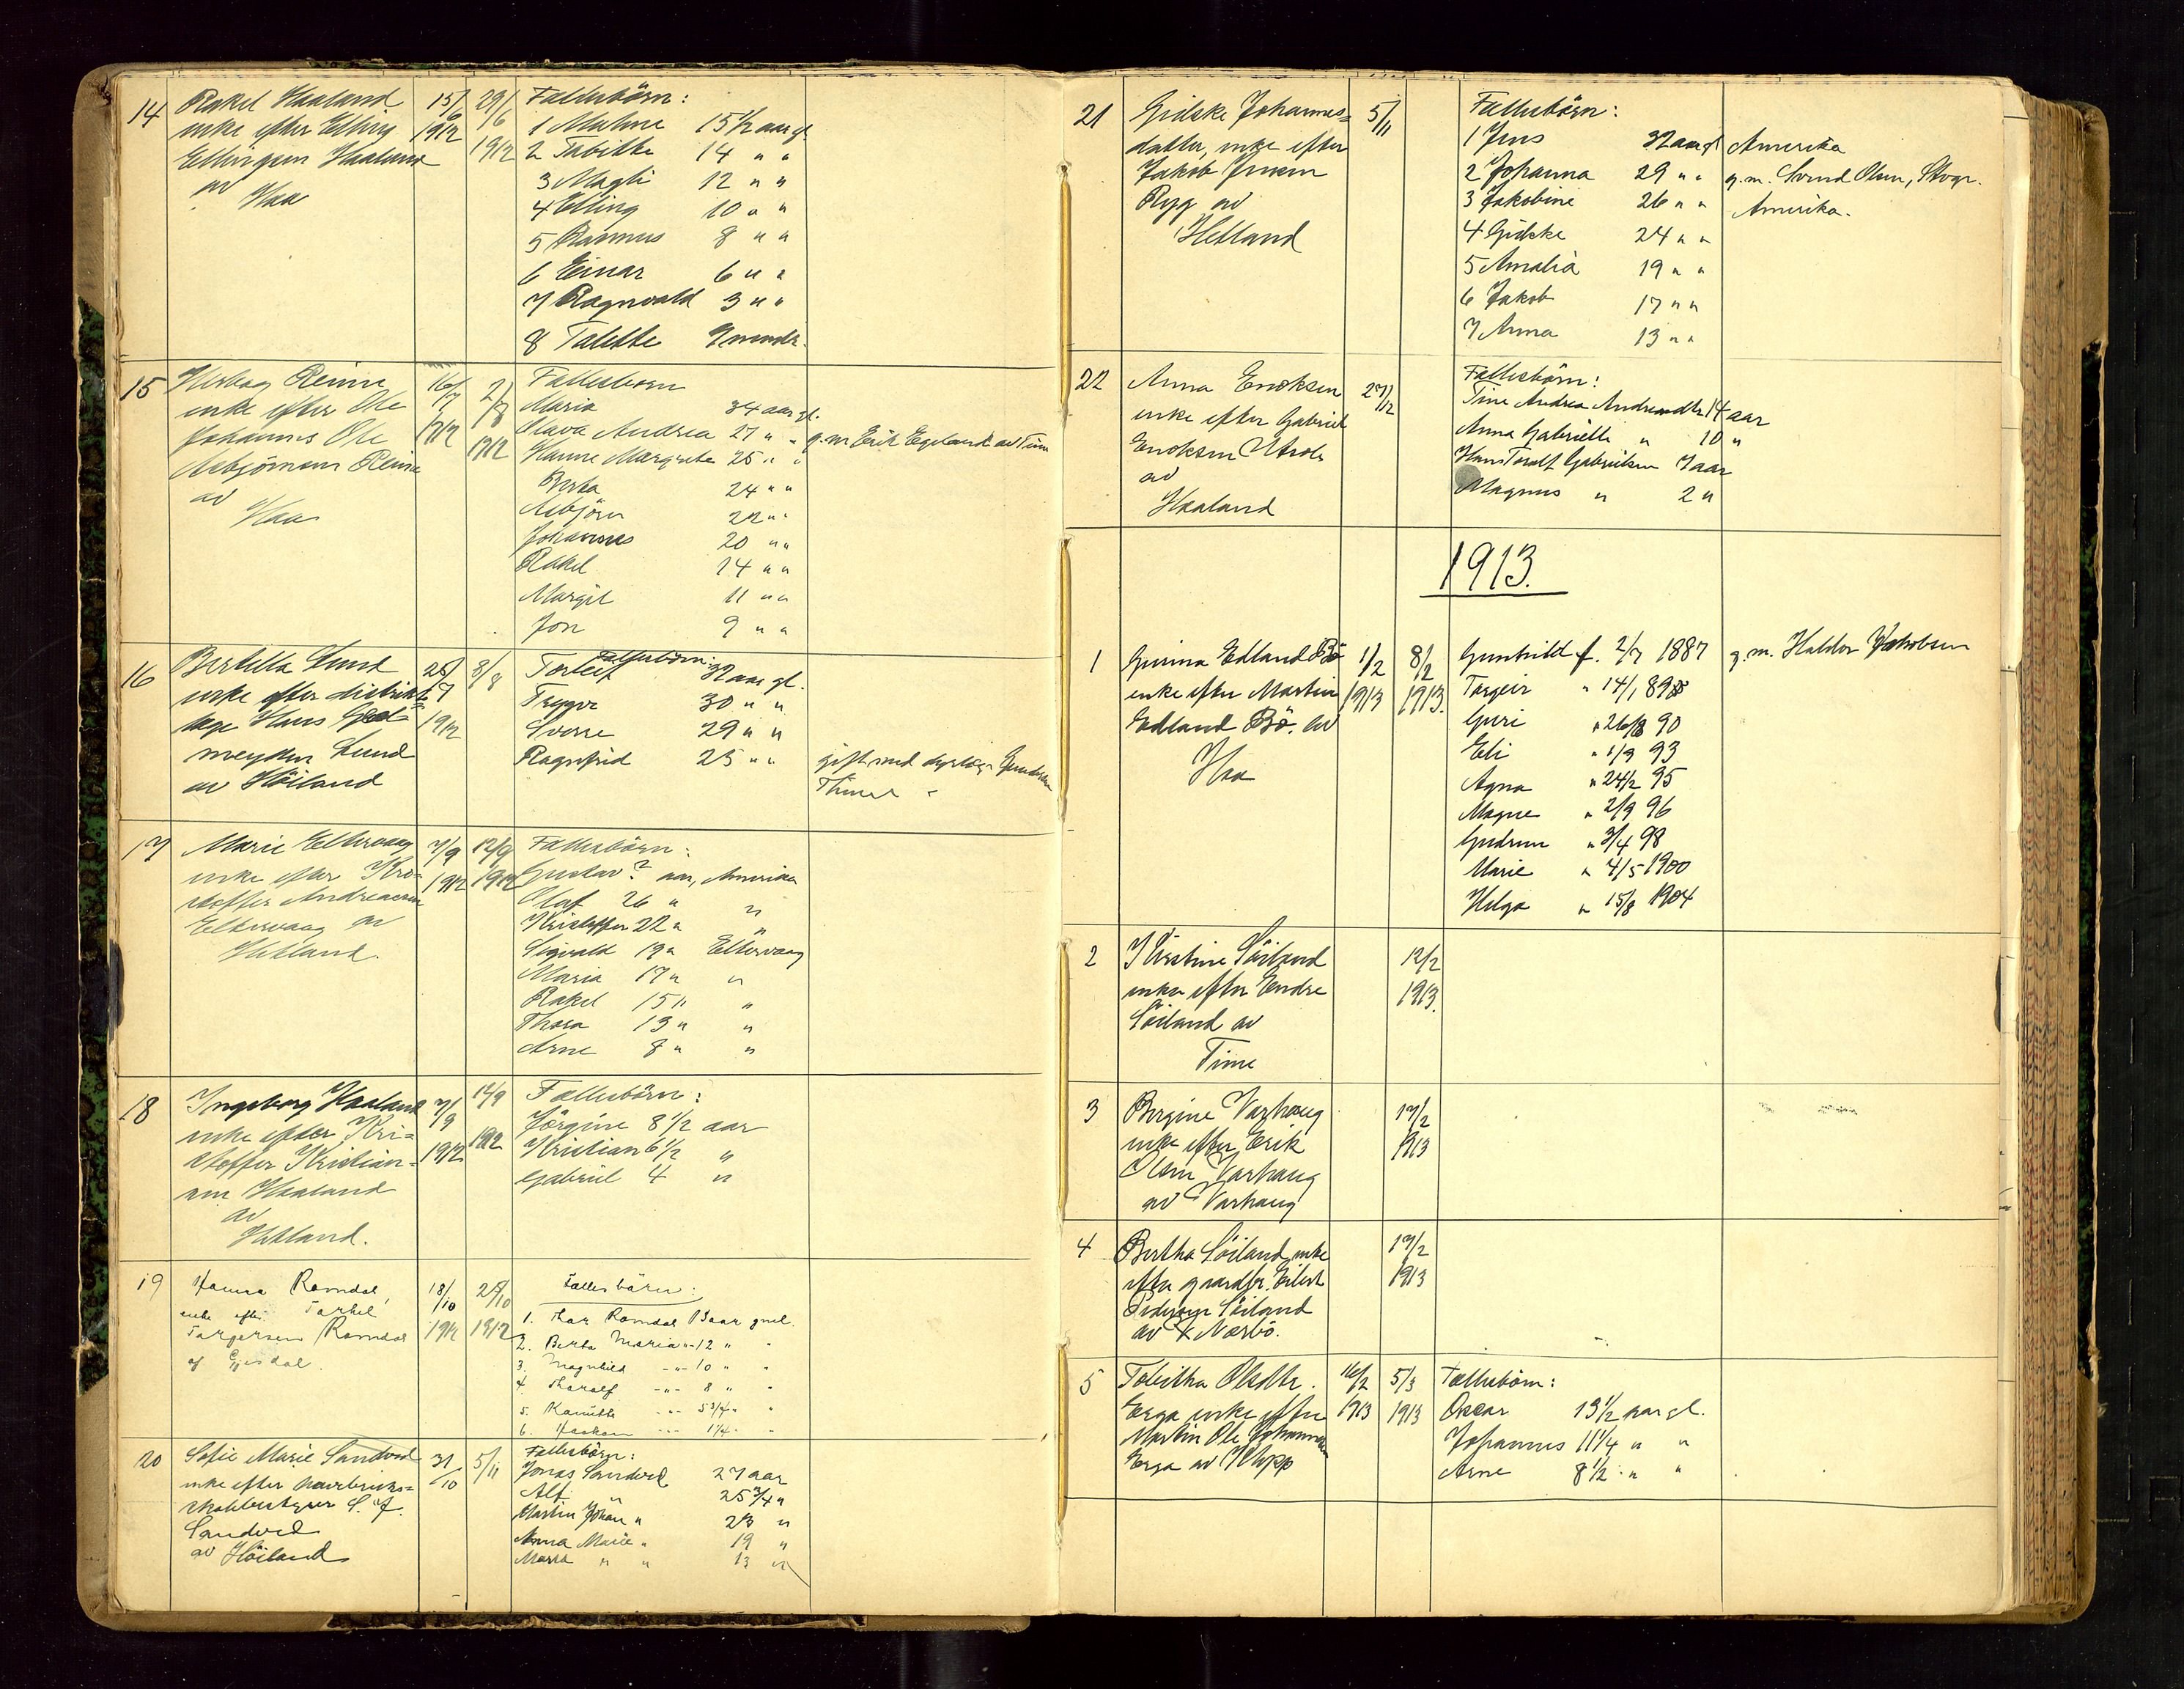 14 Rakel Haaland 15/6 29/6 Fællesbörn:
enke efter Elling 1912 1 Malene 15 1/2 aar gl.
Ellingsen Haaland 1912 2 Tabithe 14 " "
av 3 Magli 12 " "
Haa 4 Elling 10 " "
5 Rasmus 8 " "
6 Einar 6 " "
7 Ragnvald 3 " "
8 Talette 9 mndr.
15 Reime 16/7 2/8 Fællesbörn
enke efter Ole Maria 34 aar gl.
Johannes Ole 1912 Olava Andrea 27 " " g.m. Erik Egeland av Time
Asbjörnsen Reime 1912 Hanne Margrete 25 " "
av Berta 24 " "
Haa Asbjörn 22 " "
Johannes 20 " "
Rakel 14 " "
Margit 11 " "
Jon 9 " "
16 Bertella Lund 25/7 8/8 Fællesbörn:
enke efter distrikts= Torleif 32 aar gl.
læge Hans 1912 Trygve 30 " "
Lund Sverre 29 " "
av Höiland Ragnfrid 25 " " gift med
17 Marie Eltervaag 7/9 12/9 Fællesbörn:
enke efter Kri= 1912 1912 Gustav ? aar, Amerika
stoffer Andreassen Olaf 26 " "
Eltervaag av Kristoffer 22 " "
Hetland. Sigvald 19 " Eltervaag
Maria 17 " "
Rakel 15 " "
Thora 13 " "
Arne 8 " "
18 Ingeborg Haaland 7/9 12/9 Fællesbörn:
enke efter Kri= 1912 1912 Jörgine 8 1/2 aar
stoffer Kristian= Kristian 6 1/2 "
sen Haaland Gabriel 4 "
av
Hetland.
19 Hanna Ramdal, 18/10 28/10 Fællesbörn:
enke efter Tarkel 1912 1912 1. Thor Ramdal 13 aar gml.
Torgersen Ramdal 2. Berta Maria -"- 12 " "
af Gjesdal. 3. Magnhild -"- 10 " "
4. Tharalf -"- 8 " "
5. -"- 5 3/4 " "
6. Haakon -"- 1 1/4 " "
20 Sofie Marie Sandved 31/10 5/11 Fællesbörn:
enke efter havebruks= Jonas Sandved 27 aar
skolebestyrer S. J. Alf " 25 3/4 "
Sandved Martin Johan " 23 "
av Höiland Anna Marie " 19 "
Marta " " 13 "
21 Gidske Johannes= 5/11 Fællesbörn:
datter, enke efter 1 Jens 32 aar gl. Amerika
Jakob Jensen 2 Johanna 29 " " g.m. Svend Olsen, Stvgr.
Ryg av 3 Jakobine 26 " " Amerika.
Hetland 4 Gidske 24 " "
5 Amalia 19 " "
6 Jakob 17 " "
7 Anna 13 " "
22 Anna Enoksen 27/12 Fællesbörn:
enke efter Gabriel Tine Andrea Andreasdtr. 14 aar
Enoksen Anna Gabrielle " 10 "
av Hans Toralf Gabrielsen 7 aar
Haaland Magnus " 2 "
1913.
1 Gurina Edland Bö 1/2 8/2 Gunhild f. 2/7 1887 g.m. Haldor Jakobsen
enke efter Martin 1913 1913. Torgeir " 14/1 898
Edland Bö. av Guri " 26/8 90
Haa Eli " 1/9 93
Agna " 24/2 95
Magne " 2/9 96
Gudrun " 3/4 98
Marie " 4/5 1900
Helga " 15/8 1904
2 Kristine Söiland 12/2
enke efter Endre 1913.
Söiland av
Time
3 Bergine Varhaug 17/2
enke efter Erik 1913
Olsen Varhaug
av Varhaug
4 Bertha Söiland, enke 17/2
efter gaardbr. Eilert 1913
Pedersen Söiland
av Nærbö.
5 Tabitha Olsdtr. 16/2 5/3 Fællesbörn:
Erga enke efter 1913 1913 Oscar 13 1/2 aar gl.
Martin Ole Johannessen Johannes 11 1/4 " "
Erga av Klepp Arne 8 1/2 " "